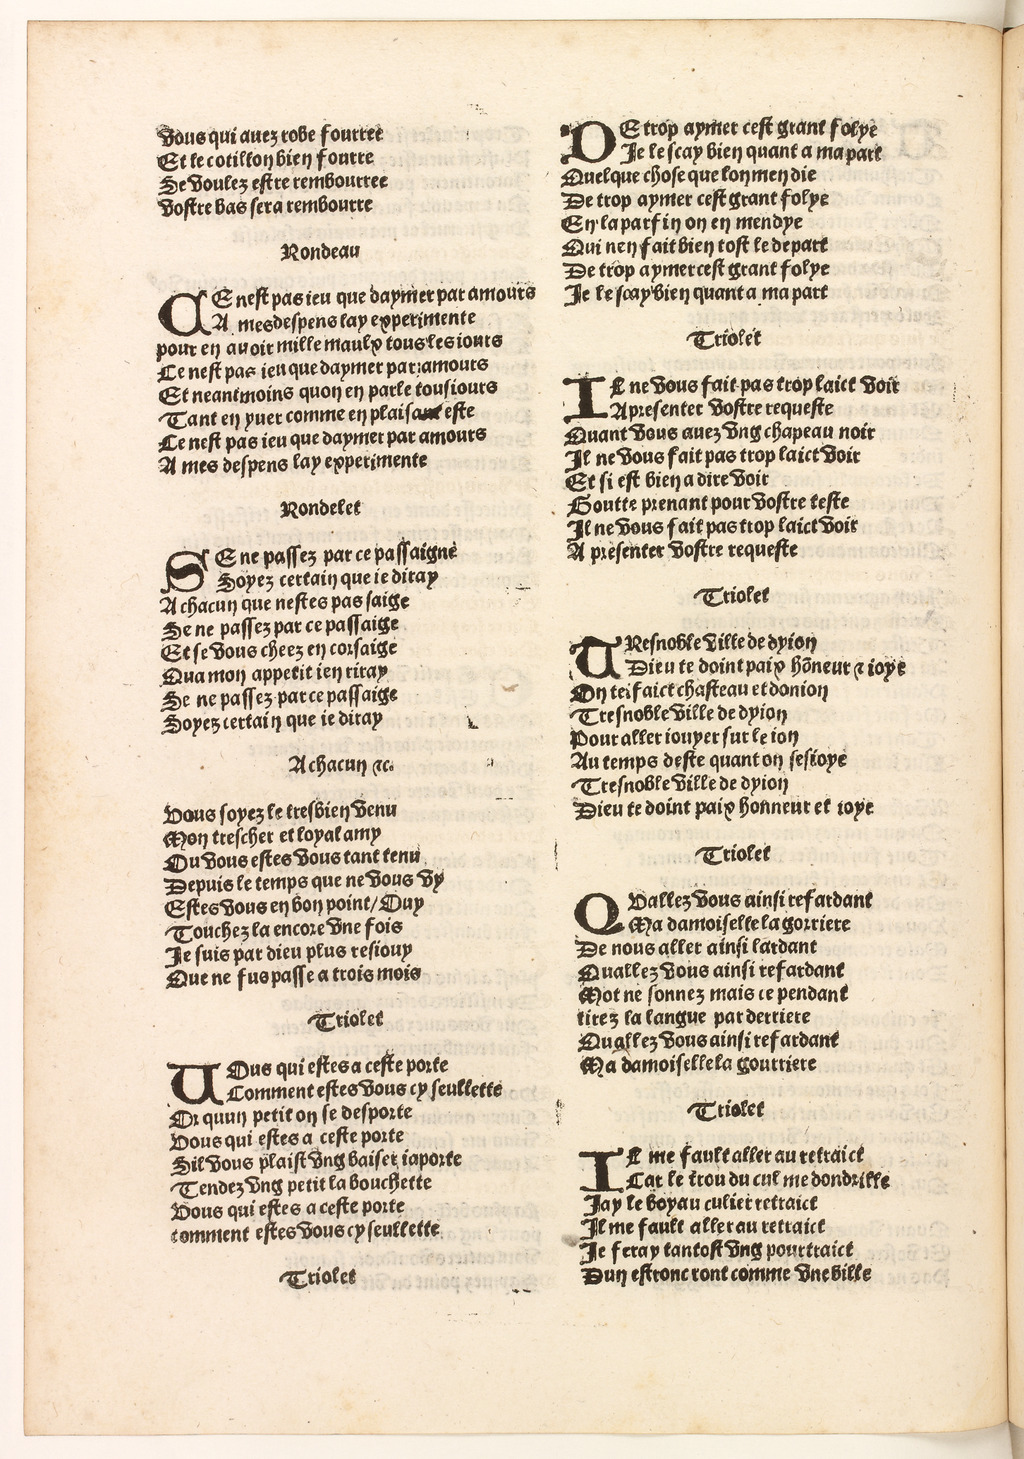 Vous qui auez robe fourree
Et le cotillon bien fourre
Se voulez estre rembourree
Vostre bas sera rembourre
Rondeau
CE nest pas ieu que daymer par amours
A mes despens lay experimente
pour en auoir mille maulx tous les iours
Ce nest pas ieu que daymer par amours
Et neantmoins quon en parle tousiours
Tant en yuer comme en plaisant este
Ce nest pas ieu que daymer par amours
A mes despens lay experimente
Rondelet
SE ne passez par ce passaigne
Soyez certain que ie diray
A chacun que nestes pas saige
Se ne passez par ce passaige
Et se vous cheez en corsaige
Qua mon appetit ien riray
Se ne passez par ce passaige
Soyez certain que ie diray
A chacun ⁊c.
Vous soyez le tresbien venu
Mon trescher et loyal amy
Ou vous estes vous tant tenu
Depuis le temps que ne vous vy
Estes vous en bon point/Ouy
Touchez la encore vne fois
Je suis par dieu plus resiouy
Que ne fus passe a trois mois
Triolet
VOus qui estes a ceste porte
Comment estes vous cy seullette
Or quun petit on se desporte
Vous qui estes a ceste porte
Sil vous plaist vng baiser iaporte
Tendez vng petit la bouchette
Vous qui estes a ceste porte
comment estes vous cy seullette
Triolet
DE trop aymer cest grant folye
Je le scay bien quant a ma part
Quelque chose que lon men die
De trop aymer cest grant folye
En la parfin on en mendye
Qui nen fait bien tost le depart
De trop aymer cest grant folye
Je le scay bien quant a ma part
Triolet
IL ne vous fait pas trop laict voir
A presenter vostre requeste
Quant vous auez vng chapeau noir
Il ne vous fait pas trop laict voir
Et si est bien a dire voir
Goutte prenant pour vostre teste
Il ne vous fait pas trop laict voir
A presenter vostre requeste
Triolet
TResnoble ville de dyion
Dieu te doint paix hõneur ⁊ ioye
On te faict chasteau et donion
Tresnoble ville de dyion
Pour aller iouyer sur le ion
Au temps deste quant on sesioye
Tresnoble ville de dyion
Dieu te doint paix honneur et ioye
Triolet
QVallez vous ainsi refardant
Ma damoiselle la gorriere
De nous aller ainsi lardant
Quallez vous ainsi refardant
Mot ne sonnez mais ce pendant
tirez la langue par derriere
Quallez vous ainsi refardant
Ma damoiselle la gourriere
Triolet
IL me fault aller au retraict
Car le trou du cul me dondrille
Jay le boyau culier retraict
Il me fault aller au retraict
Je feray tantost vng pourtraict
Dun estronc ront comme vne bille